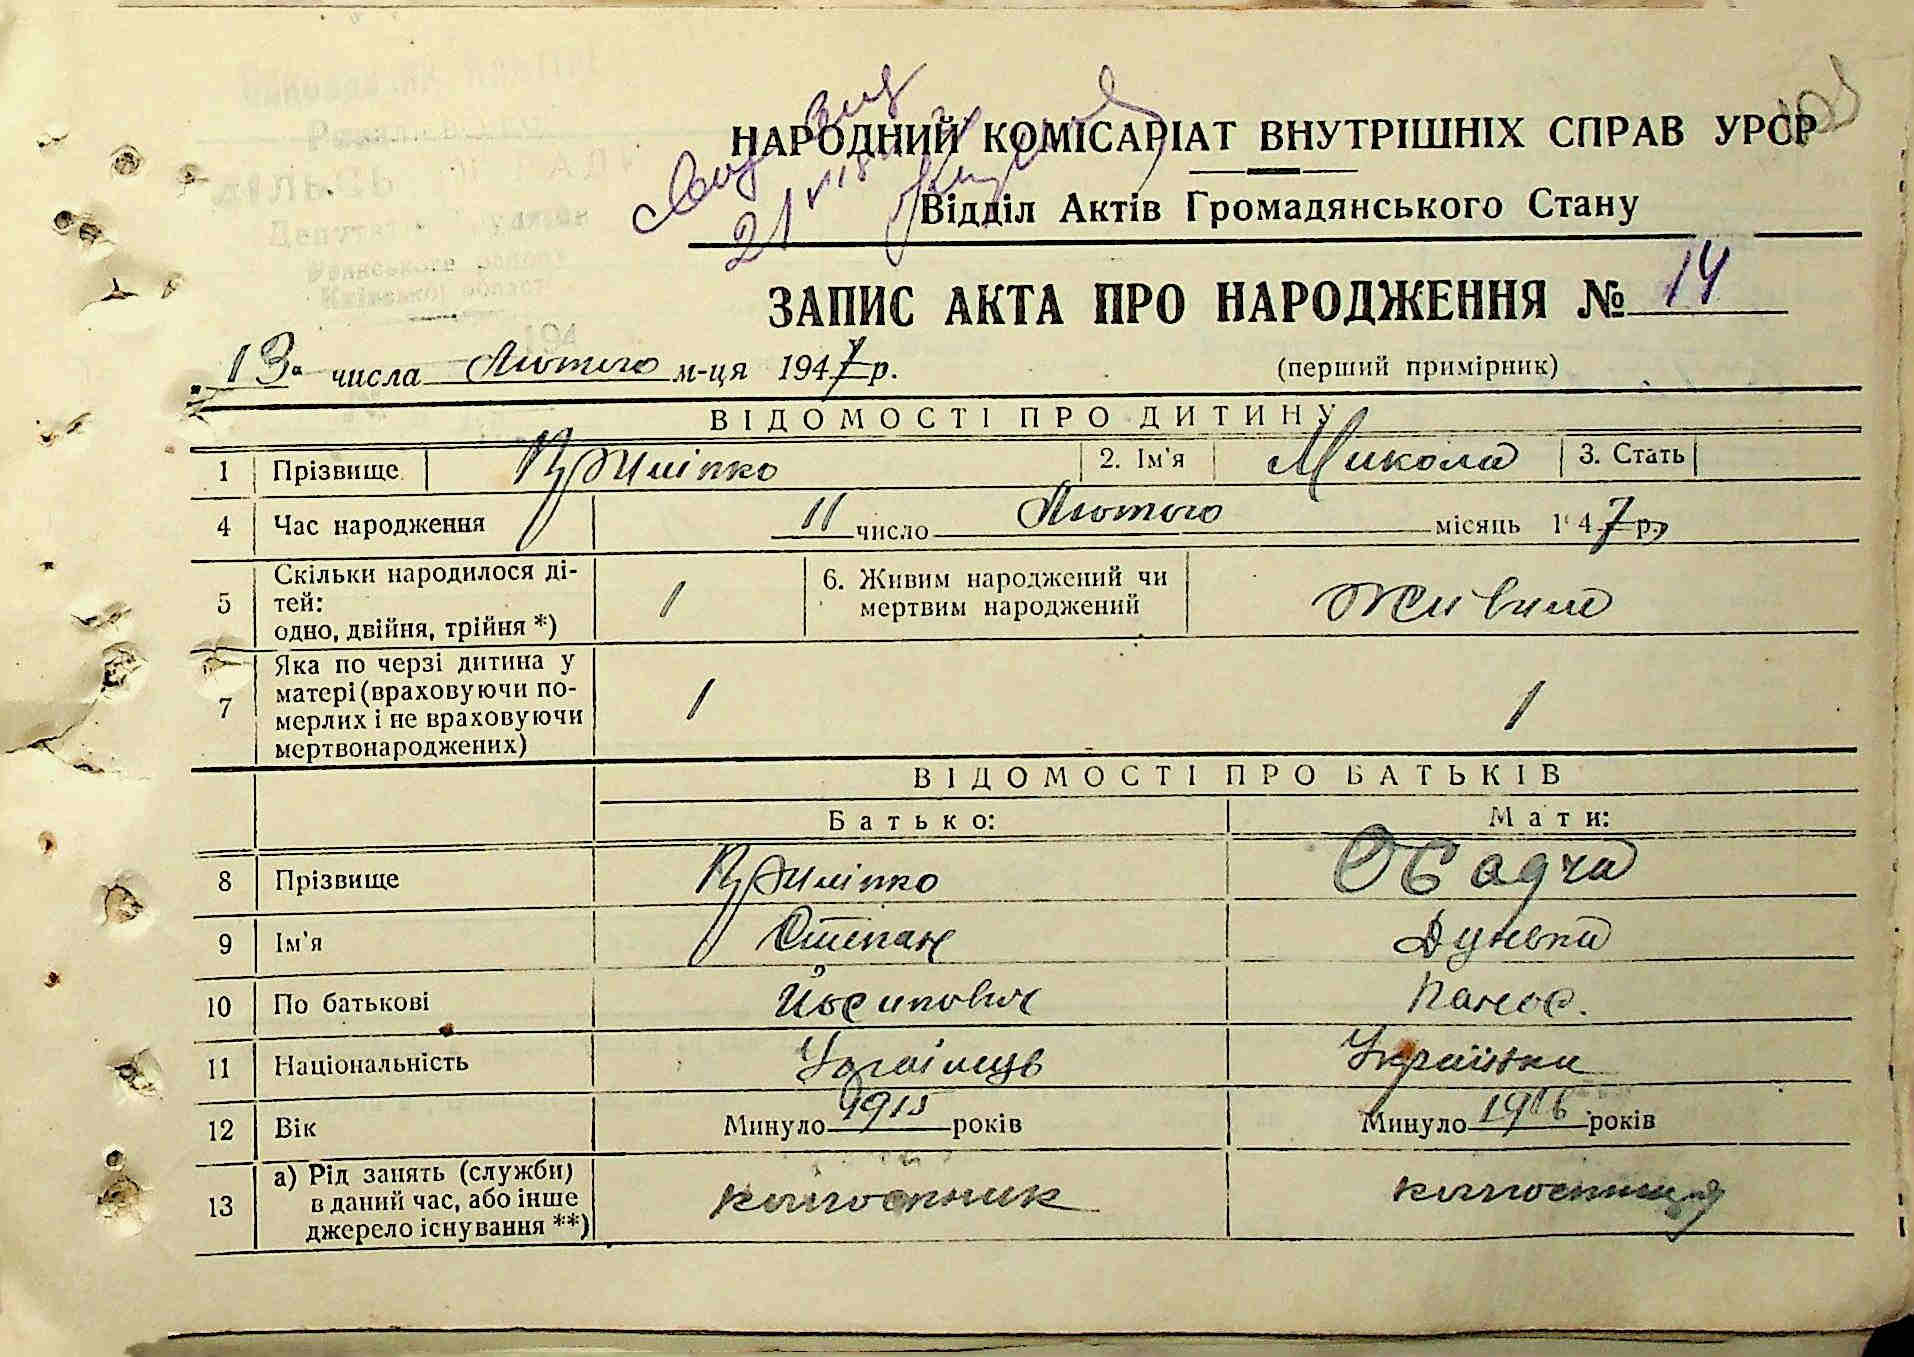 НАРОДНИЙ КОМІСАРІАТ ВНУТРІШНІХ СПРАВ УРСР
Відділ Актів Громадянського Стану
ЗАПИС АКТА ПРО НАРОДЖЕННЯ № 14
„13“ числа Лютого м-ця 1947 р. (перший примірник)
ВІДОМОСТІ ПРО ДИТИНУ
1 Прізвище 2. Ім'я Микола 3. Стать
4 Час народження 11 число Лютого місяць 1947 р.
5 Скільки народилося ді-
тей:
одно, двійня, трійня *) 1 6. Живим народжений чи
мертвим народжений Живим
7 Яка по черзі дитина у
матері (враховуючи по-
мерлих і не враховуючи
мертвонароджених) 1 1
ВІДОМОСТІ ПРО БАТЬКІВ
Батько: Мати:
8 Прізвище Осадча
9 Ім'я Степан Дунька
10 По батькові Йосипович Панас.
11 Національність Українець Українка
12 Вік Минуло 1915 років Минуло 1916 років
13 а) Рід занять (служби)
в даний час, або інше
джерело існування **) колгоспник колгоспниця